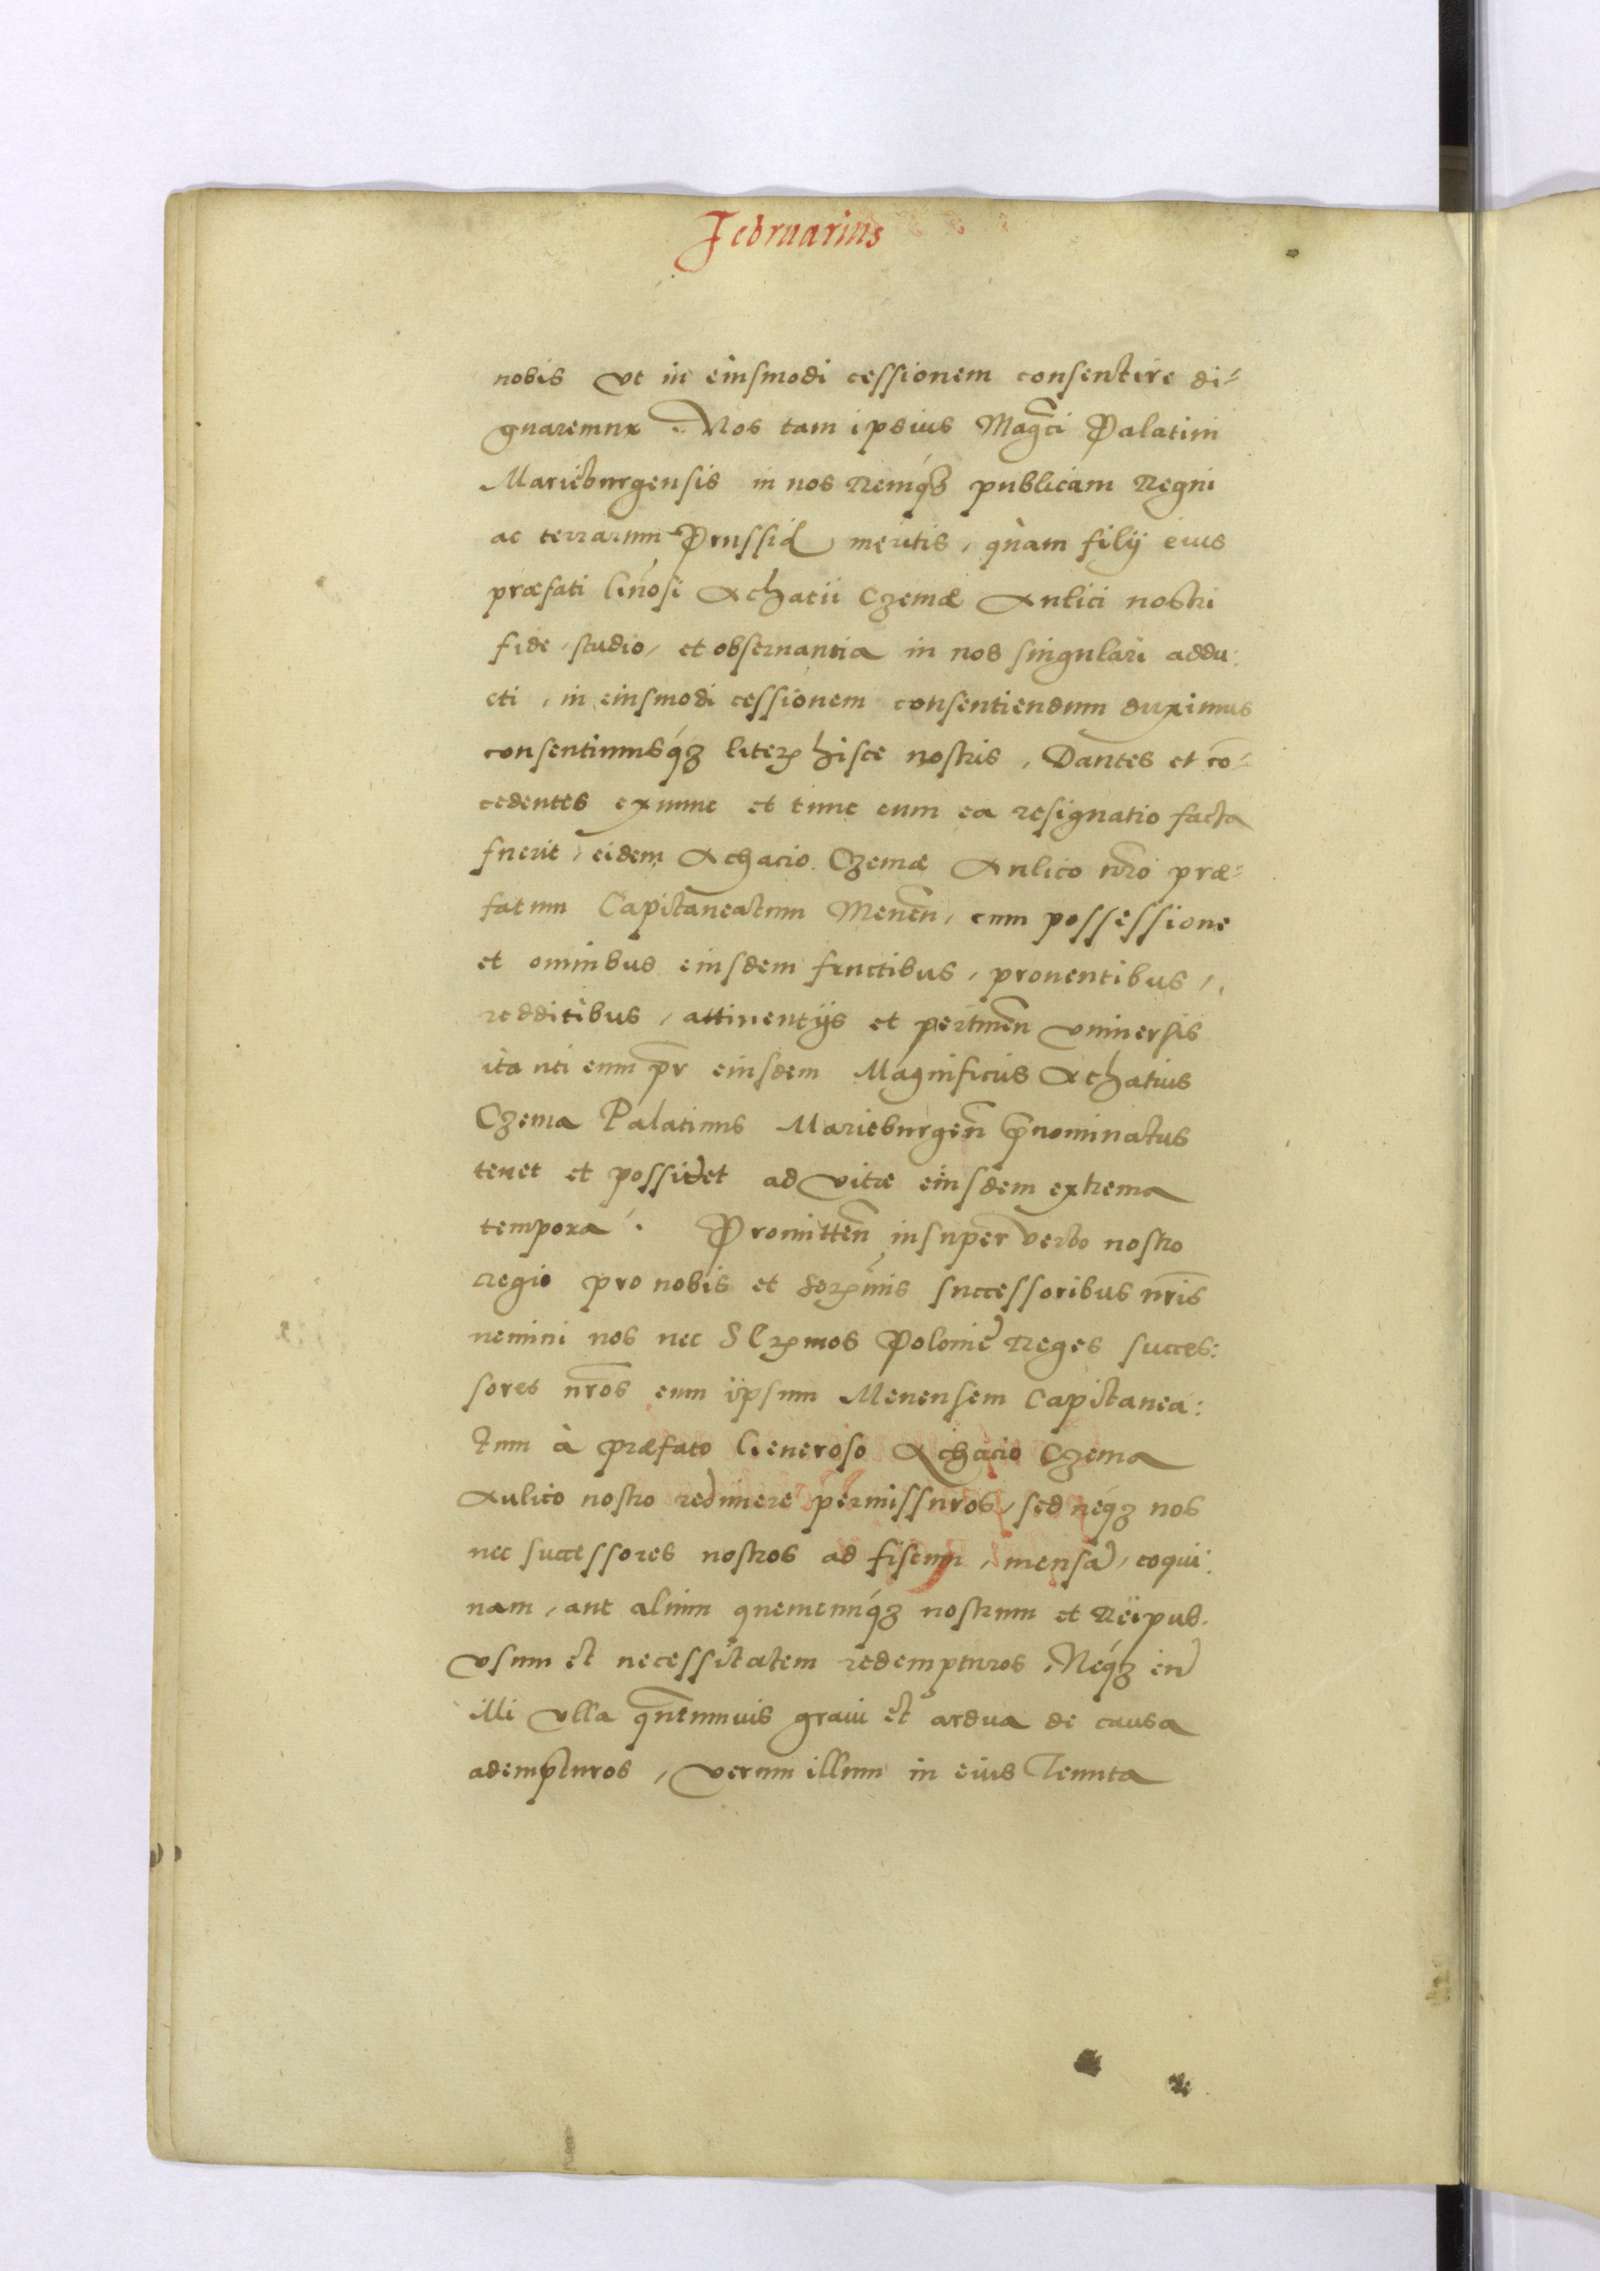 Februarius
nobis vt in eiusmodi cessionem consentire di-
gnaremur. Nos tam ipsius Mag̃ci Palatini
Marieburgensis in nos Remq́ꝫ publicam Regni
ac terrarum Prussiæ meritis, quàm filij eius
præfati Gñosi Achatii Czemæ Aulici nostri
fide, studio, et obseruantia in nos singulari addu:
cti, in eiusmodi cessionem consentiendum duximus
consentimusq́ꝫ literꝭ hisce nostris, Dantes et cō-
cedentes exnunc et tunc cum ea resignatio facta
fuerit, eidem Achacio Czemæ Aulico nr̃o præ-
fatum Capitaneatum Meneñ, cum possessione
et omnibus eiusdem fructibus, prouentibus,
redditibus, attinentijs et pertineñ vniuersis
ita uti eum pr̄ eiusdem Magnificus Achatius
Czema Palatinus Marieburgeñ p̄nominatus
tenet et possidet ad vitæ eiusdem extrema
tempora. Promitteñ insuper verbo nostro
regio pro nobis et Serꝭmis successoribus nr̃is
nemini nos nec Serꝭmos Polonię Reges succes:
sores nr̃os eum ipsum Menensem Capitanea:
tum à præfato Generoso Achacio Czema
Aulico nostro redimere permissuros, sed neq́ꝫ nos
nec successores nostros ad fiscum, mensã, coqui:
nam, aut alium quemcunq́ꝫ nostrum et Reipub.
vsum et necessitatem redempturos, Neq́ꝫ eũ
illi vlla quãtumuis graui et ardua de causa
adempturos, verum illum in eius Tenuta